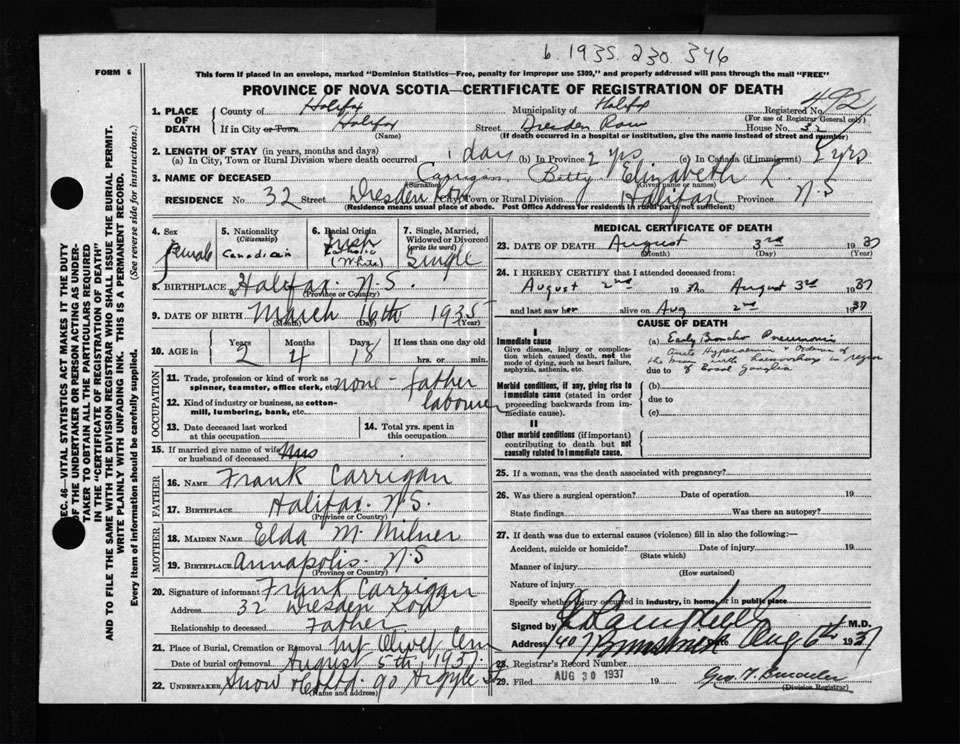 6. 1935. 230. 346
FORM 6
This form if placed in an envelope, marked "Dominion Statistics—Free, penalty for improper use $300," and properly addressed will pass through the mail "FREE"
PROVINCE OF NOVA SCOTIA—CERTIFICATE OF REGISTRATION OF DEATH
1. PLACE OF DEATH
County of Halifax Municipality of Halifax Registered No. 492
(For use of Registry General only)
If in City or Town Halifax Street Dresden Row House No. 32
(Name) (If death occurred in a hospital or institution, give the name instead of street and number)
2. LENGTH OF STAY (in years, months and days)
(a) In City, Town or Rural Division where death occurred 1 day (b) In Province 2 yrs (c) In Canada (if immigrant) 2 yrs
3. NAME OF DECEASED Carrigan Betty Elizabeth L.
(Surname) (Given name or names)
RESIDENCE No. 32 Street Dresden Row City, Town or Rural Division Halifax Province N.S
(Residence means usual place of abode. Post Office Address for residents in rural parts not sufficient)
4. Sex 5. Nationality (Citizenship) 6. Racial Origin 7. Single, Married, Widowed or Divorced (write the word)
Female Canadian Irish (White) Single
8. BIRTHPLACE Halifax. N.S.
(Province or Country)
9. DATE OF BIRTH March 16th 1935
(Month) (Day) (Year)
10. AGE in Years Months Days If less than one day old
2 4 18 hrs. or min.
OCCUPATION
11. Trade, profession or kind of work as spinner, teamster, office clerk, etc. none - father
12. Kind of industry or business, as cotton-mill, lumbering, bank, etc. labourer
13. Date deceased last worked at this occupation
14. Total yrs. spent in this occupation
15. If married give name of wife or husband of deceased
FATHER
16. NAME Frank Carrigan
17. BIRTHPLACE Halifax. N.S.
(Province or Country)
MOTHER
18. MAIDEN NAME Elda M. Milner
19. BIRTHPLACE Annapolis. N.S
(Province or Country)
20. Signature of informant Frank Carrigan
Address 32 Dresden Row
Relationship to deceased Father
21. Place of Burial, Cremation or Removal Mt Olivet Cem
Date of burial or removal August 5th, 1937.
22. UNDERTAKER Snow 90 Argyle St
(Name and address)
MEDICAL CERTIFICATE OF DEATH
23. DATE OF DEATH August 3rd 1937
(Month) (Day) (Year)
24. I HEREBY CERTIFY that I attended deceased from:
August 2nd 1937 to August 3rd 1937
and last saw her alive on Aug 2nd 1937
CAUSE OF DEATH
I
Immediate cause
Give disease, injury or complication which caused death, not the mode of dying, such as heart failure, asphyxia, asthenia, etc.
(a) Early Broncho Pneumonia
due to
of Basal Ganglia
Morbid conditions, if any, giving rise to immediate cause (stated in order proceeding backwards from immediate cause).
(b)
due to
(c)
II
Other morbid conditions (if important) contributing to death but not causally related to immediate cause.
25. If a woman, was the death associated with pregnancy?
26. Was there a surgical operation? Date of operation 19
State findings Was there an autopsy?
27. If death was due to external causes (violence) fill in also the following:—
Accident, suicide or homicide? Date of injury 19
(State which)
Manner of injury
(How sustained)
Nature of injury
Specify whether injury occurred in industry, in home, or in public place
Signed by M.D.
Address 407 Brunswick Date Aug 6th 1937
28. Registrar's Record Number
29. Filed AUG 30 1937 19
(Division Registrar)
SEC. 46—VITAL STATISTICS ACT MAKES IT THE DUTY
OF THE UNDERTAKER OR PERSON ACTING AS UNDER-
TAKER TO OBTAIN ALL THE PARTICULARS REQUIRED
IN THE "CERTIFICATE OF REGISTRATION OF DEATH"
AND TO FILE THE SAME WITH THE DIVISION REGISTRAR WHO SHALL ISSUE THE BURIAL PERMIT.
WRITE PLAINLY WITH UNFADING INK. THIS IS A PERMANENT RECORD.
Every item of information should be carefully supplied. (See reverse side for instructions.)